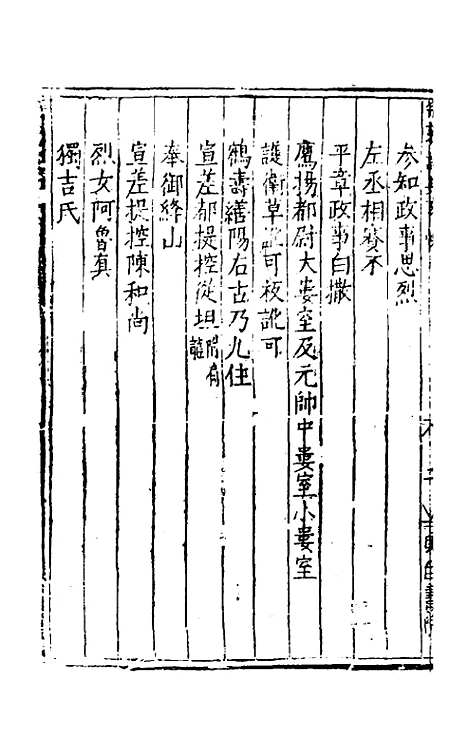 參知政事思烈
左丞相賽不
平章政事白撒
鷹揚都尉大婁室及元帥中婁室小婁室
護衛草訛可板訛可
鶴壽繕陽右古乃九住
宣差都提控從坦
奉御絳山
宣差提控陳和尚
烈女阿魯真
獨吉氏